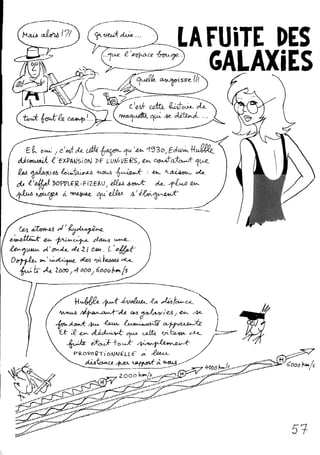 LA FUITE DES
GALAXIES
Mais alors !?!
ça veut dire ...
que l'espace bouge.
Quelle angoisse !!!
tout fout le camp !...
c'est cette histoire de
maquette qui se détend ...
Eh oui, c'est de cette façon qu'en 1930, Edwin Hubble
découvrit l'EXPANSION DE L'UNIVERS, en constatant que
les galaxies lointaines nous fuient : en raison de
de l'effet DOPPLER-FIZEAU, elles sont de plus en
plus rouges à mesure qu'elles s'éloignent
Ces atomes d'hydrogène
émettent en principe dans une
longueur d'onde de 21 cm. L'effet
Doppler m'indique des vitesses de
fuite de 2000, 4000, 6000 km/s
Hubble put évaluer la distance
nous séparant de ces galaxies, en se
fondant sur leur luminosité apparente
Et il en déduisit que cette vitesse de
fuite était tout simplement
PROPORTIONNELLE à leur
distance par rapport à nous.
H
2000 km/s
H
4000 km/s
H
6000 km/s
57